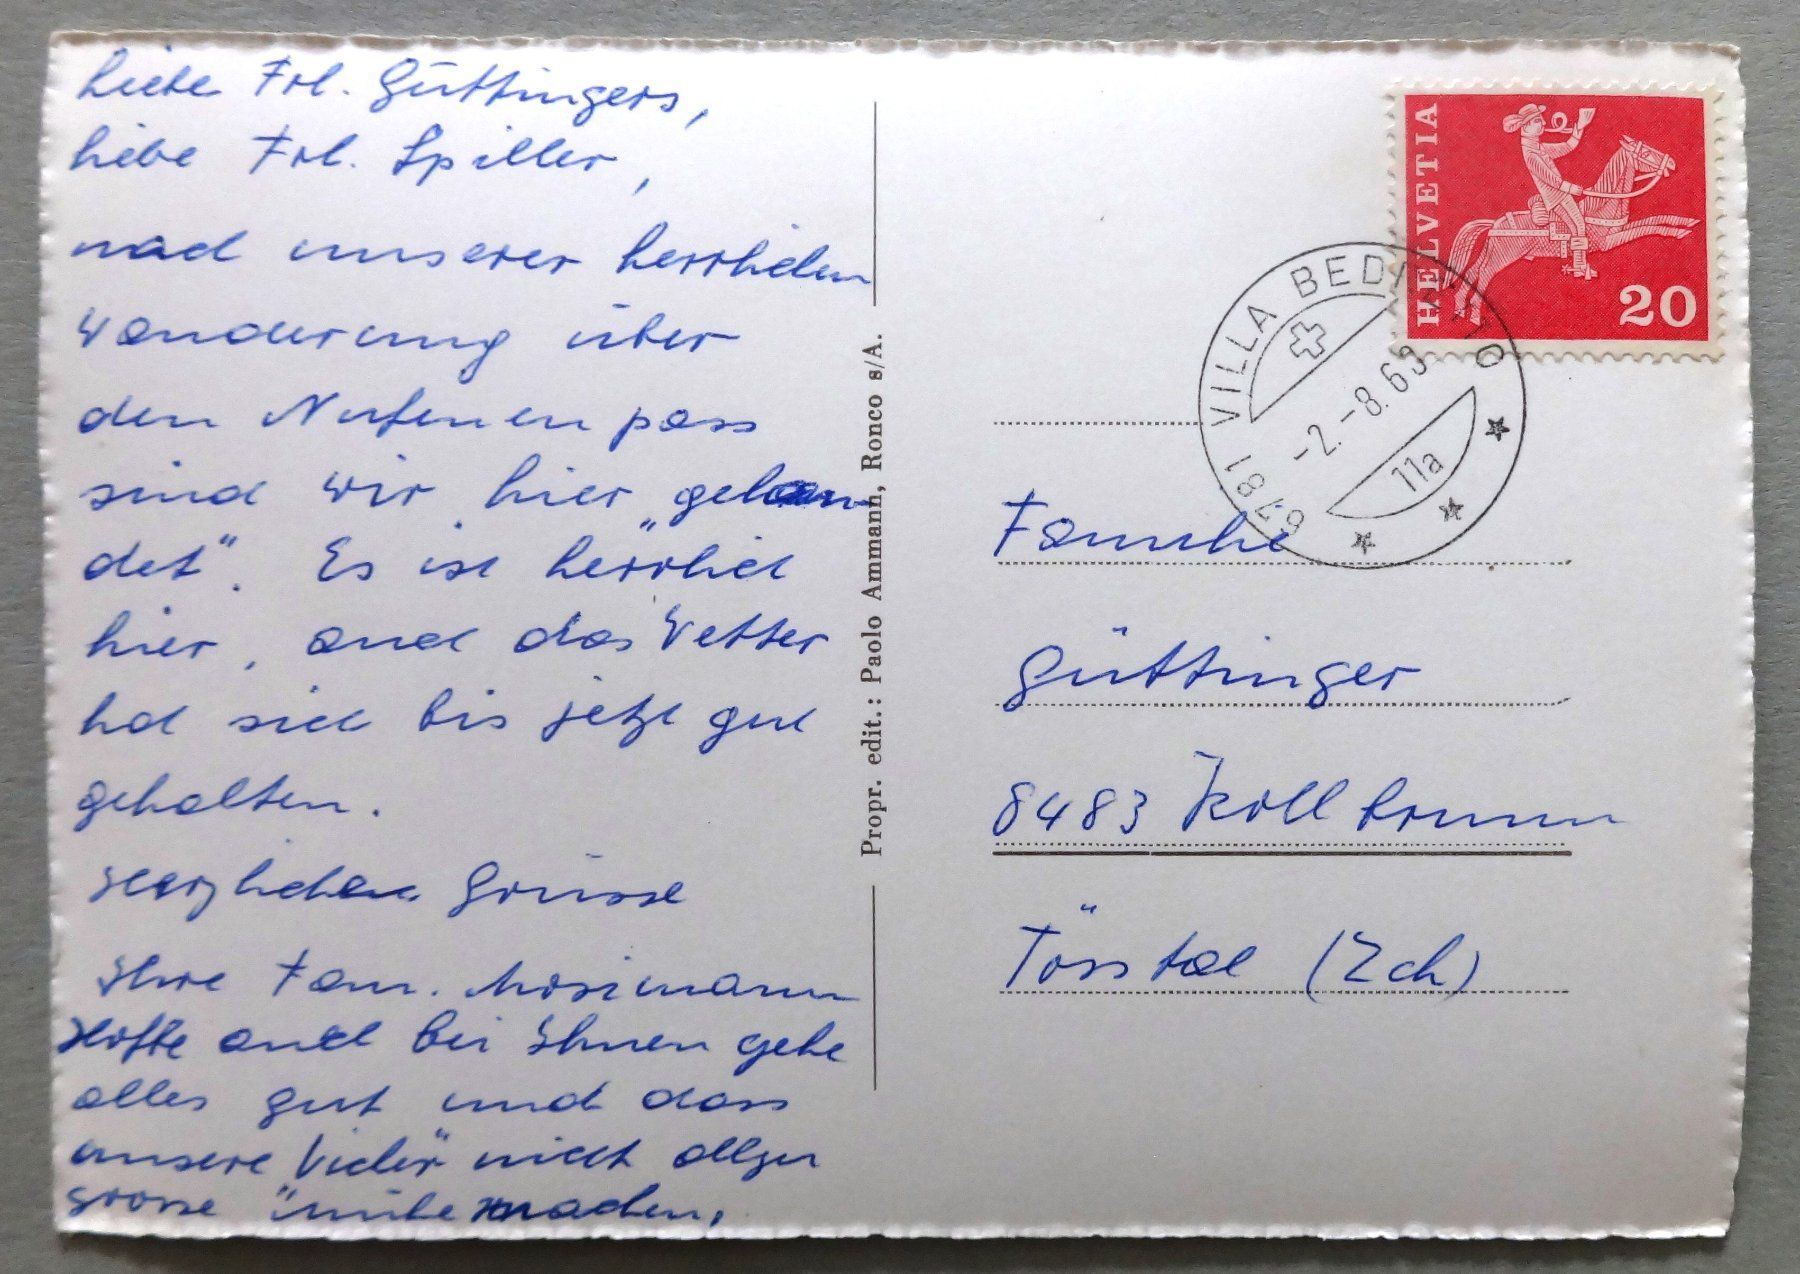 Liebe Frl. Güttingers,
liebe Frl. Spiller,
nach unserer herrlichen
Wanderung über
den Nufenenpass
sind wir hier „gelan
det". Es ist herrlich
hier, auch das Wetter
hat sich bis jetzt gut
gehalten.
Herzlichen Grüsse
Ihre Fam. Mosimann
Hoffe auch bei Ihnen gehe
alles gut und dass
unsere „Viecher" nicht allzu
grosse Mühe machen.
Propr. edit.: Paolo Ammann, Ronco s/A.
HELVETIA
20
6781 VILLA BEDRETTO
-2.-8.69
11a
Familie
Güttinger
8483 Kollbrunn
Tösstal (Zch)